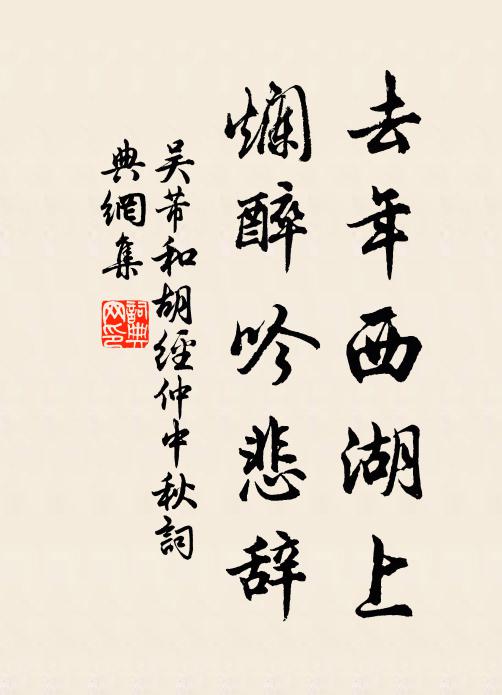 去年西湖上
爛醉吟悲辞
吳芾和胡經仲中秋詞
典網集
詞典网印